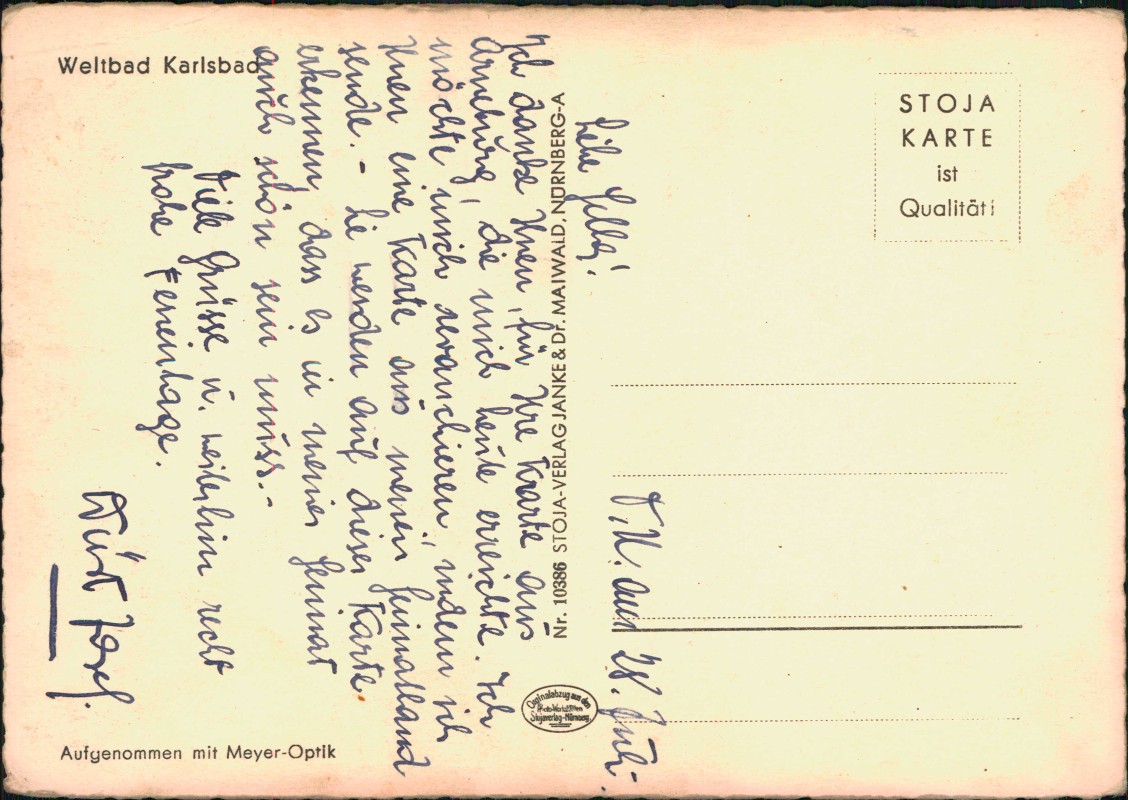 Weltbad Karlsbad
STOJA
KARTE
ist
Qualität!
Nr. 10386 STOJA-VERLAG JANKE & Dr. MAIWALD, NÜRNBERG-A
am 28. Juli.
Ich danke Ihnen, für Ihre Karte aus
Arneburg, die mich heute erreichte. Ich
möchte mich revanchieren, indem ich
Ihnen eine Karte aus meinem Heimatland
sende. - Sie werden auf dieser Karte
erkennen, dass es in meiner Heimat
auch schön sein muss. -
Viele Grüsse u. weiterhin recht
frohe Ferientage.
Josef.
Originalabzug aus den
Stojaverlag-Nürnberg
Aufgenommen mit Meyer-Optik